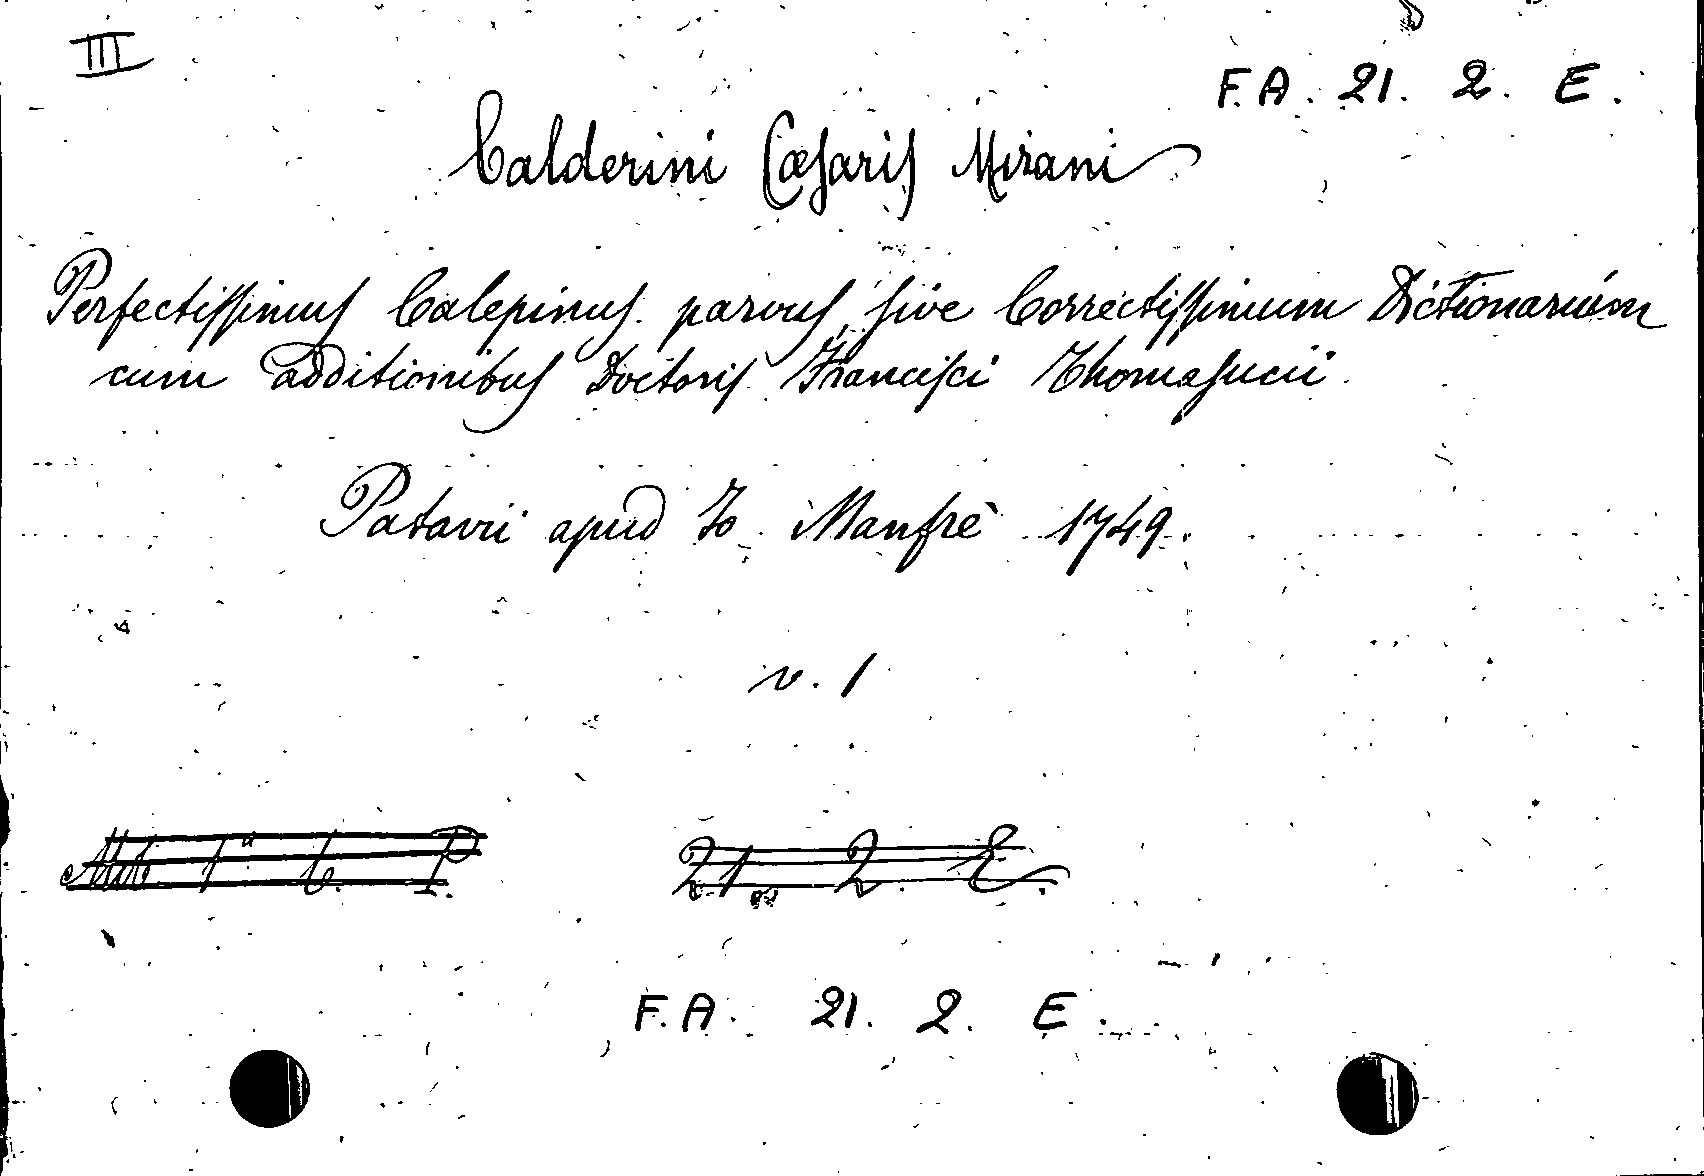 III
F.A. 21. 2. E.
Calderini Cæsaris Mirani
Perfectissimus Calepinus parvus, sive Correctissimum Dictionarium
cum additionibus Doctoris Francisci Thomasucii
Patavii apud Jo. Manfrè 1749.
v. 1
21. 2. E.
F.A. 21. 2. E.